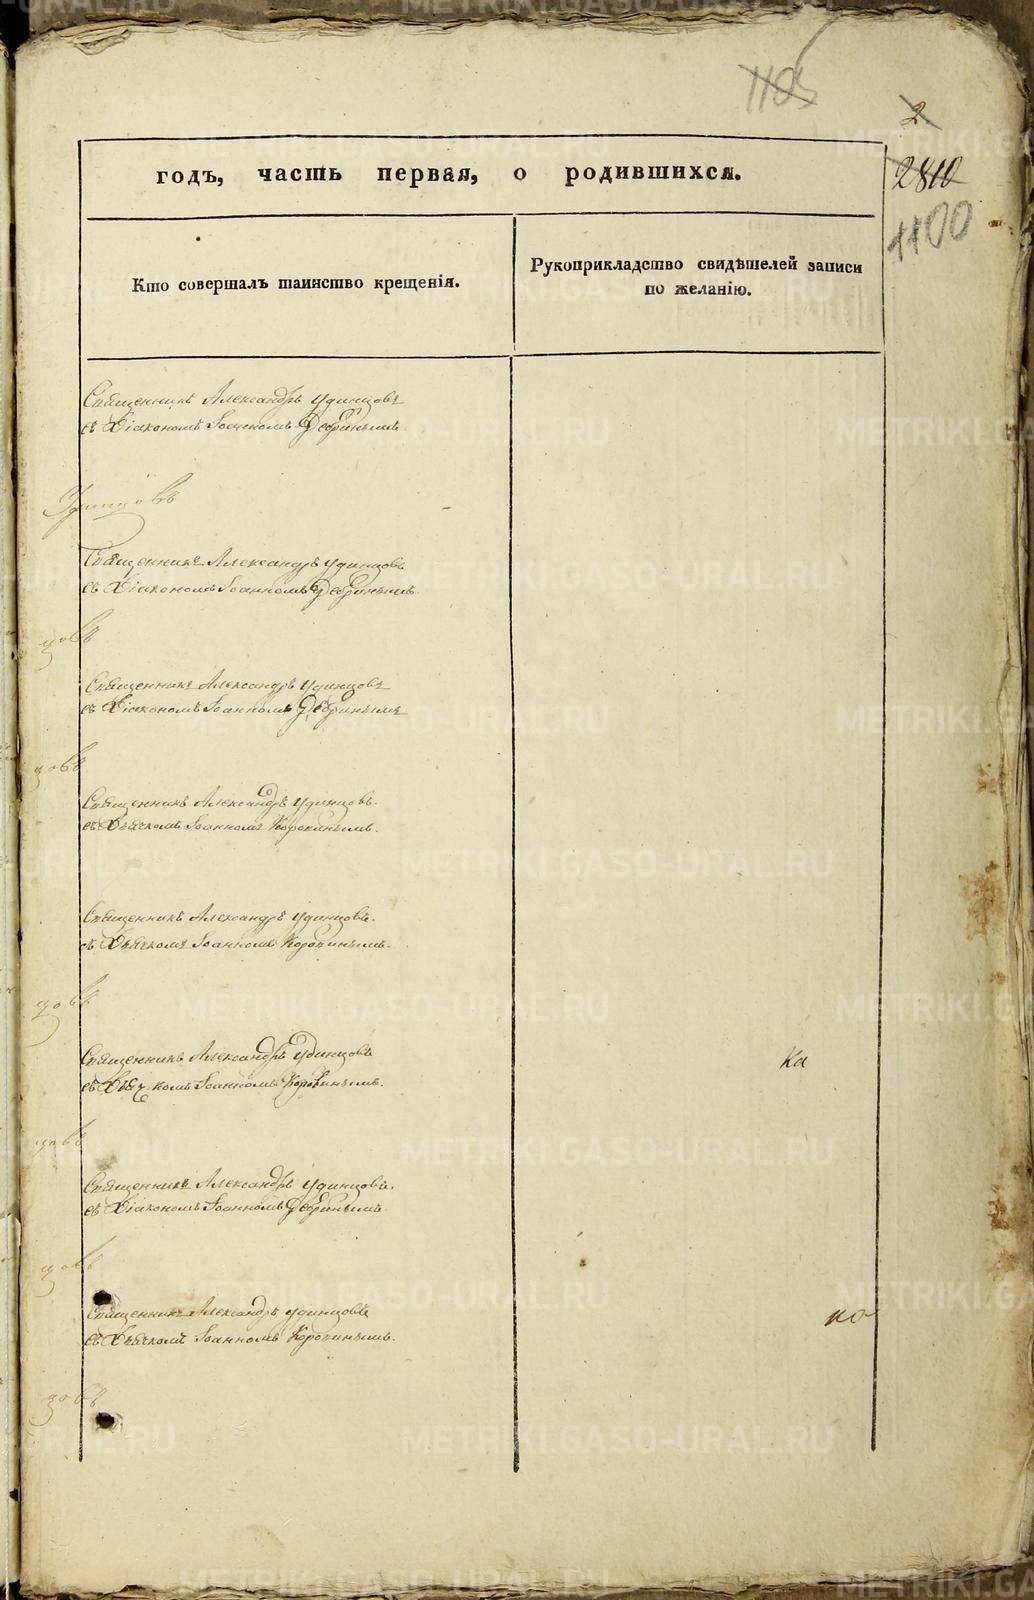 1105
2
2810
1100
годъ, часть первая, о родившихся.
Кто совершалъ таинство крещенія.
Рукоприкладство свидѣтелей записи
по желанію.
Священникъ Александръ Удинцовъ
съ Діакономъ Іоанномъ Дебринымъ
Удинцовъ
Священникъ Александръ Удинцовъ
съ Діакономъ Іоанномъ Дебринымъ.
цовъ
Священникъ Александръ Удинцовъ
съ Діакономъ Іоанномъ Дебринымъ
цовъ
Священникъ Александръ Удинцовъ.
съ Дьячкомъ Іоанномъ Коровинымъ.
Священникъ Александръ Удинцовъ.
съ Дьячкомъ Іоанномъ Коровинымъ.
цовъ
Священникъ Александръ Удинцовъ
съ Дьячкомъ Іоанномъ Коровинымъ.
Ка
цовъ
Священникъ Александръ Удинцовъ.
съ Діакономъ Іоанномъ Дебринымъ
цовъ
Священникъ Александръ Удинцовъ
съ Дьячкомъ Іоанномъ Коровинымъ.
но
цовъ
METRIKI.GASO-URAL.RU